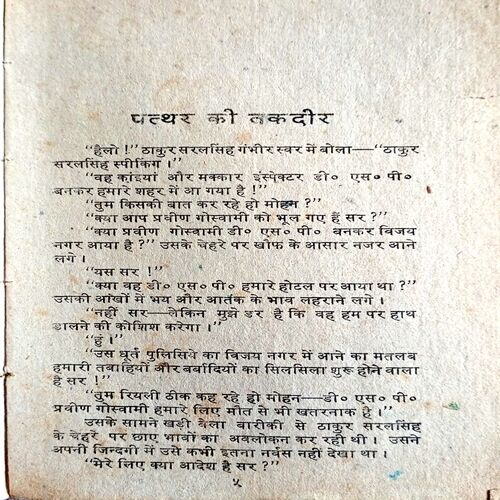 पत्थर की तकदीर
“हैलो !” ठाकुर सरलसिंह गंभीर स्वर में बोला—“ठाकुर
सरलसिंह स्पीकिंग ।”
“वह कांइयां और मक्कार इंस्पेक्टर डी० एस० पी०
बनकर हमारे शहर में आ गया है !”
“तुम किसकी बात कर रहे हो मोहन ?”
“क्या आप प्रवीण गोस्वामी को भूल गए हैं सर ?”
“क्या प्रवीण गोस्वामी डी० एस० पी० बनकर विजय
नगर आया है ?” उसके चेहरे पर खौफ के आसार नजर आने
लगे ।
“यस सर !”
“क्या वह डी० एस० पी० हमारे होटल पर आया था ?”
उसकी आंखों में भय और आतंक के भाव लहराने लगे ।
“नहीं सर—लेकिन मुझे डर है कि वह हम पर हाथ
डालने की कोशिश करेगा ।”
“हूं ।”
“उस धूर्त पुलिसिये का विजय नगर में आने का मतलब
हमारी तबाहियों और बर्बादियों का सिलसिला शुरू होने वाला
है सर !”
“तुम रियली ठीक कह रहे हो मोहन—डी० एस० पी०
प्रवीण गोस्वामी हमारे लिए मौत से भी खतरनाक है ।”
उसके सामने खड़ी बेला बारीकी से ठाकुर सरलसिंह
के चेहरे पर छाए भावों का अवलोकन कर रही थी । उसने
अपनी जिन्दगी में उसे कभी इतना नर्वस नहीं देखा था ।
“मेरे लिए क्या आदेश है सर ?”
५